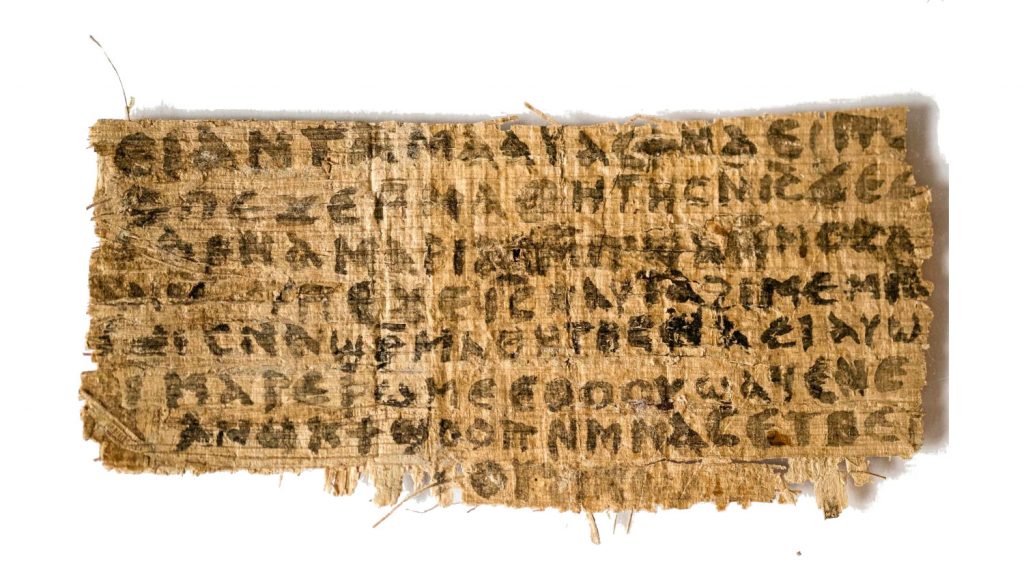 ⲉⲓ ⲁⲛ ⲧⲁⲙⲁⲁⲩ ⲁⲥϯ ⲛⲁⲉⲓ ⲡⲱ
ⲡⲉϫⲉ ⲙⲙⲁⲑⲏⲧⲏⲥ ⲛ̄ⲓ̄ⲥ̄ ϫⲉ ⲥ
ⲁⲣⲛⲁ ⲙⲁⲣⲓⲁⲙ ⲙ̄ⲡϣⲁ ⲙ̄ⲙⲟⲥ ⲁ
ⲡⲉϫⲉ ⲓ̄ⲥ̄ ⲛⲁⲩ ⲧⲁϩⲓⲙⲉ ⲙⲛ̄
ⲥⲛⲁϣⲣ̄ⲙⲁⲑⲏⲧⲏⲥ ⲛⲁⲉⲓ ⲁⲩⲱ
ⲙⲁⲣⲉⲣⲱⲙⲉ ⲉⲑⲟⲟⲩ ϣⲁϥⲉ ⲛⲉ
ⲁⲛⲟⲕ ϯϣⲟⲟⲡ ⲛⲙ̄ⲙⲁⲥ ⲉⲧⲃⲉ